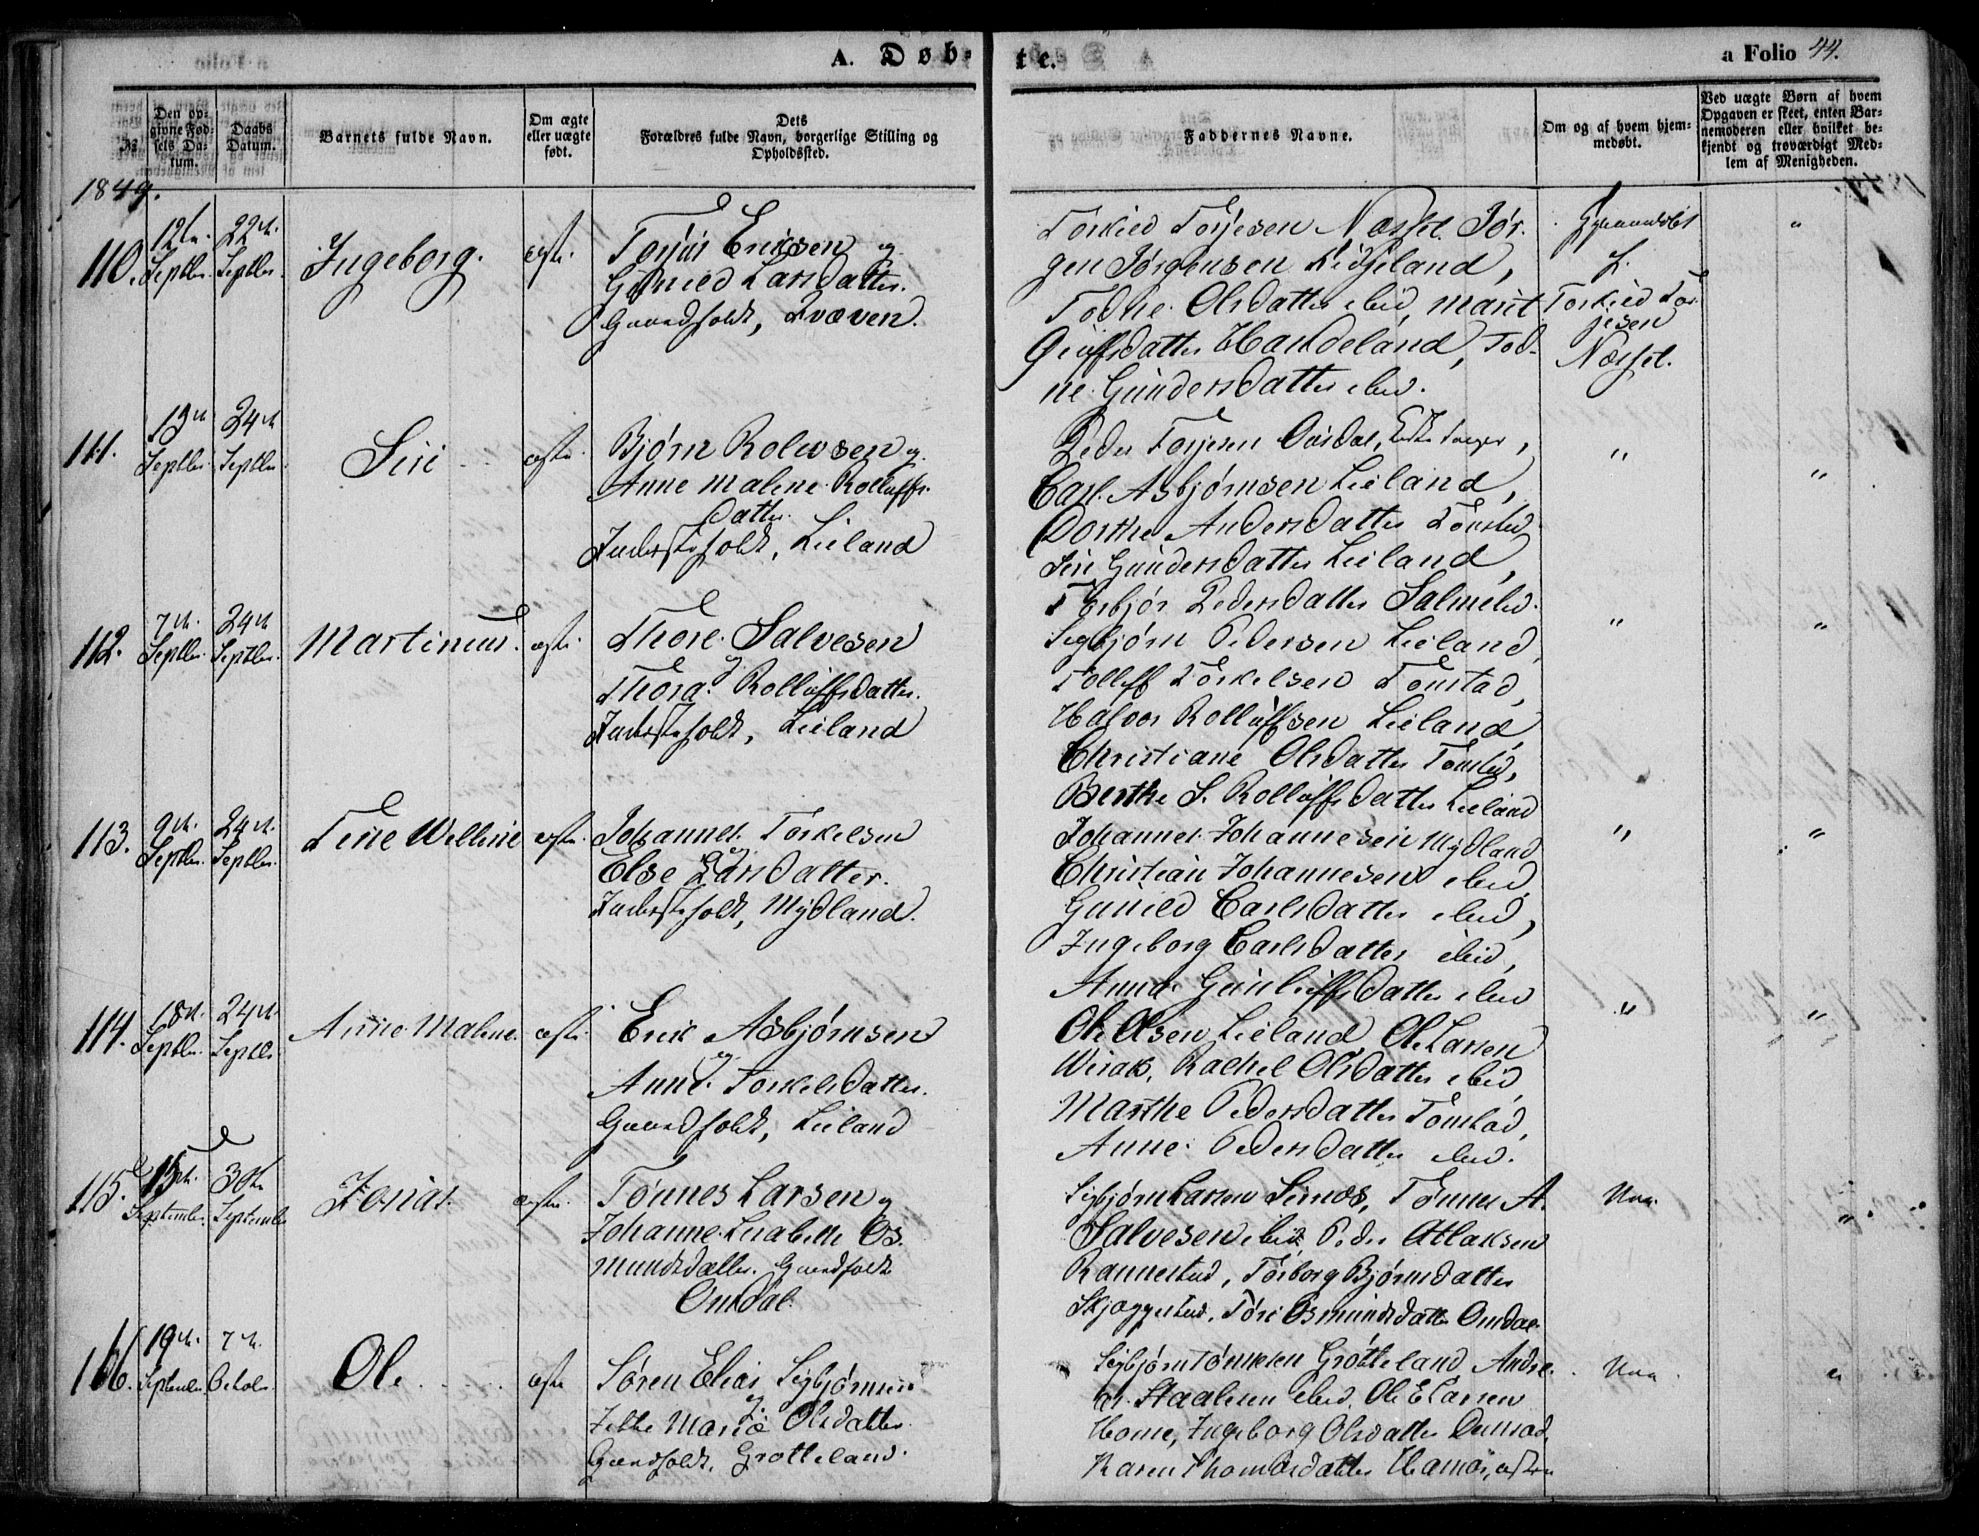 A. Døb-
te.
a Folio 44.
№
Den op-
givne Fød-
sels Da-
tum.
Daabs
Datum.
Barnets fulde Navn.
Om ægte
eller uægte
født.
Dets
Forældres fulde Navn, borgerlige Stilling og
Opholdssted.
Faddernes Navne.
Om og af hvem hjem-
medøbt.
Ved uægte Børn af hvem
Opgaven er skeet, enten Bar-
nemoderen eller hvilket be-
kjendt og troværdigt Med-
lem af Menigheden.
1849.
110.
12te
Septbr.
22de
Septbr.
Ingeborg.
ægte.
Torjus Eriksen og
Gunild Larsdatter.
Gaardfolk, Qvæven.
Torkild Torjesen Næsset. Jør-
gen Jørgensen
Todne Olsdatter ibid, Marit
datter Haudeland, Tod-
ne Gundersdatter ibid.
Hjemmedøbt
Torkild Tor-
jesen
Næsset.
111.
13de
Septbr.
24de
Septbr.
Siri
ægte.
Bjørn Rolwsen og
Anne Malene Rolluffs-
datter.
Inderstefolk, Lieland
Peder Torjesen Ousdal,
Carl Asbjørnsen Lieland,
Dorthe Andersdatter Tonstad
Siri Gundersdatter Lieland,
Torbjør Pedersdatter
"
"
112.
7de
Septbr.
24de
Septbr.
Martinus.
ægte.
Thore Salvesen
og
Thora Rolluffsdatter.
Inderstefolk, Lieland
Sigbjørn Pedersen Lieland,
Tolleff Torkelsen Tonstad,
Halvor Rolluffsen Lieland,
Christiane Olsdatter Tonstad,
Berthe S. Rolluffsdatter Lieland
"
"
113.
9de
Septbr.
24de
Septbr.
Tine Welline
ægte.
Johannes Torkelsen
og
Else Larsdatter.
Inderstefolk, Mydland.
Johannes Johannesen Mydland
Christian Johannesen ibid,
Gunild Carlsdatter ibid,
Ingeborg Carlsdatter ibid,
Anne Gunluffsdatter ibid
"
"
114.
18de
Septbr.
24de
Septbr.
Anne Malene.
ægte.
Erik Asbjørnsen
og
Anne Torkelsdatter.
Gaardfolk, Lieland
Ole Olsen Lieland, Ole Larsen
Wirak, Rachel Olsdatter ibid,
Marthe Pedersdatter Tonstad,
Anne Pedersdatter ibid.
"
"
115.
15de
September
30te
September
Jonas.
ægte.
Tønnes Larsen og
Johanne Lisabeth Os-
mundsdatter. Gaardfolk
Omdal.
Sigbjørn Larsen Sirnes, Tønnes A.
Salvesen ibid, Peder Atlaksen
Rannestad, Torborg Bjørnsdatter
Skjeggestad, Tøri Osmundsdatter Omdal.
Nei.
"
116.
19de
September
7de
Octobr.
Ole
ægte
Søren Elias Sigbjørnsen
og
Marie Olsdatter.
Gaardfolk, Grøtteland.
Sigbjørn Tønnesen Grøtteland, Andre-
as Staalesen ibid, Ole E Larsen
Home, Ingeborg Olsdatter
Karen Thomasdatter
Nei
"